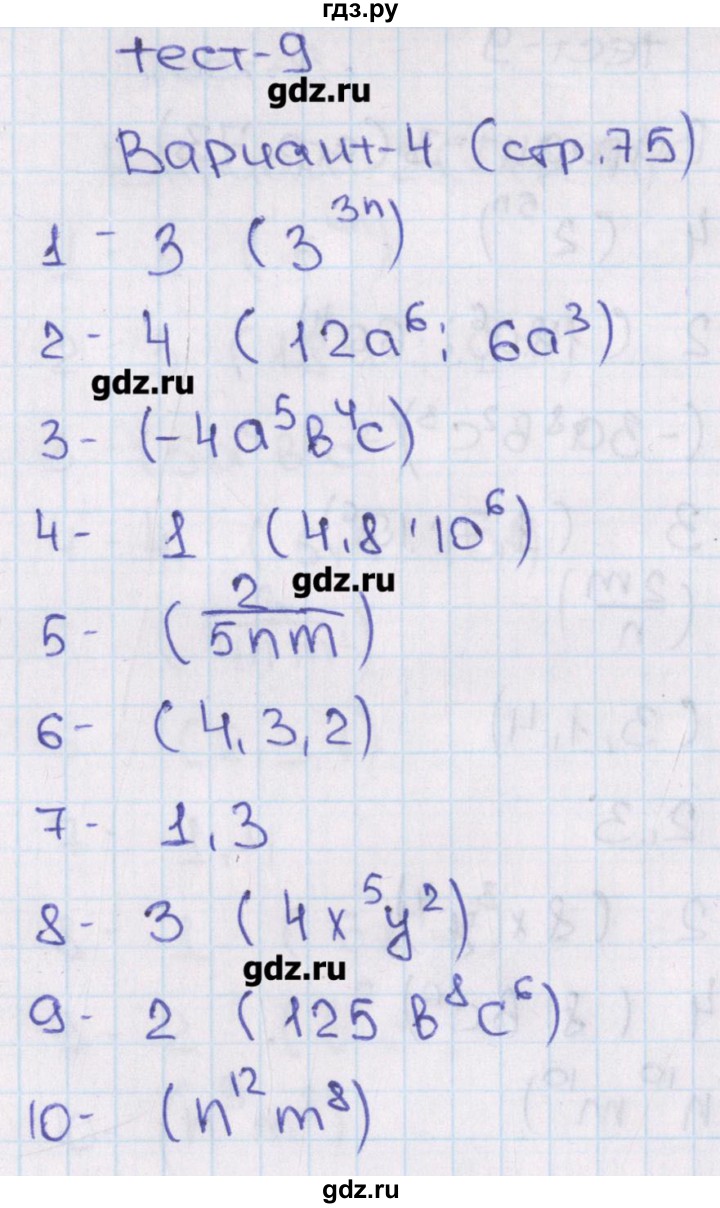 гдз.ру
тест-9
gdz.ru
Вариант-4 (стр.75)
1 - 3 (3³ⁿ)
2 - 4 (12a⁶; 6a³)
gdz.ru
3 - (-4a⁵b⁴c)
4 - 1 (4,8·10⁶)
gdz.ru
5 - (2/5nm)
6 - (4,3,2)
7 - 1,3
8 - 3 (4x⁵y²)
gdz.ru
9 - 2 (125b⁸c⁶)
10 - (n¹²m⁸)
gdz.ru